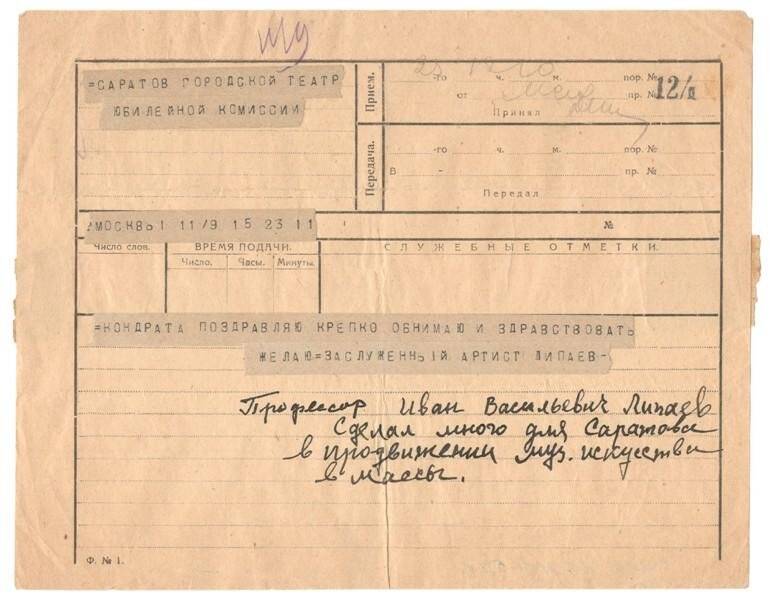 =САРАТОВ ГОРОДСКОЙ ТЕАТР
ЮБИЛЕЙНОЙ КОМИССИИ
Прием.
-го ч. м. пор. №
от пр. №
12/
Принял
Передача.
-го ч. м. пор. №
В - пр. №
Передал
МОСКВЫ 11/9 15 23 11
№
Число слов.
ВРЕМЯ ПОДАЧИ.
СЛУЖЕБНЫЕ ОТМЕТКИ.
Число. Часы. Минуты.
=КОНДРАТА ПОЗДРАВЛЯЮ КРЕПКО ОБНИМАЮ И ЗДРАВСТВОВАТЬ
ЖЕЛАЮ=ЗАСЛУЖЕННЫЙ АРТИСТ ЛИПАЕВ-
Профессор Иван Васильевич Липаев
Сделал много для Саратова
в продвижении муз. искусства
в массы.
Ф. № 1.